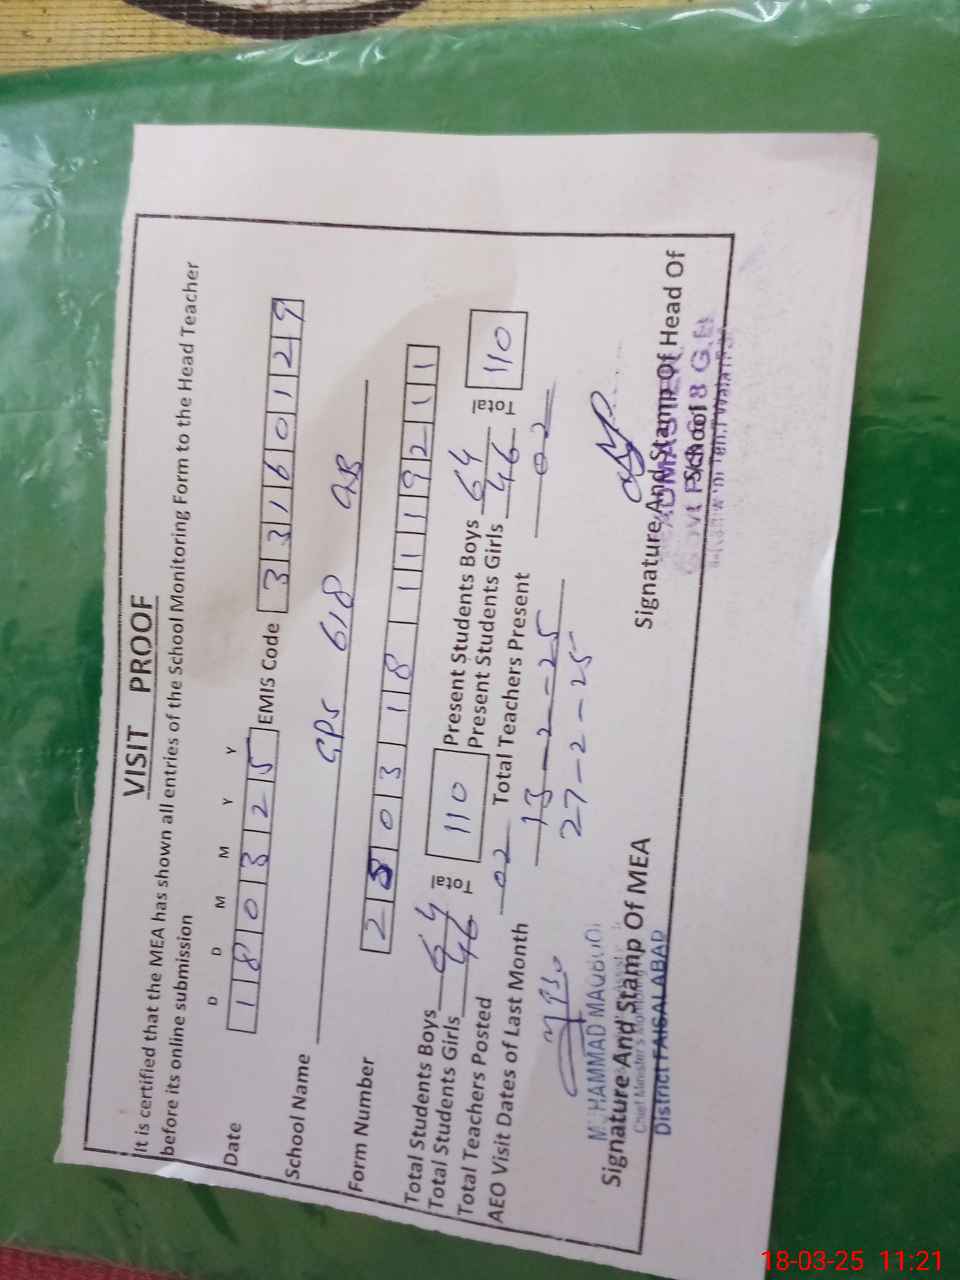 VISIT PROOF
It is certified that the MEA has shown all entries of the School Monitoring Form to the Head Teacher
before its online submission
D D M M Y Y
Date 180325 EMIS Code 33160129
School Name GPS 618 GB
Form Number 2803181119211
Total Students Boys 64 Total 110 Present Students Boys 64 Total 110
Total Students Girls 46 Present Students Girls 46
Total Teachers Posted 02 Total Teachers Present 02
AEO Visit Dates of Last Month 13-2-25
27-2-25
MUHAMMAD MAQBOOL
Signature And Stamp Of MEA
Chief Minister's Monitoring
District FAISALABAD
Signature And Stamp Of Head Of
School
Govt P/S 618 G.B
18-03-25 11:21